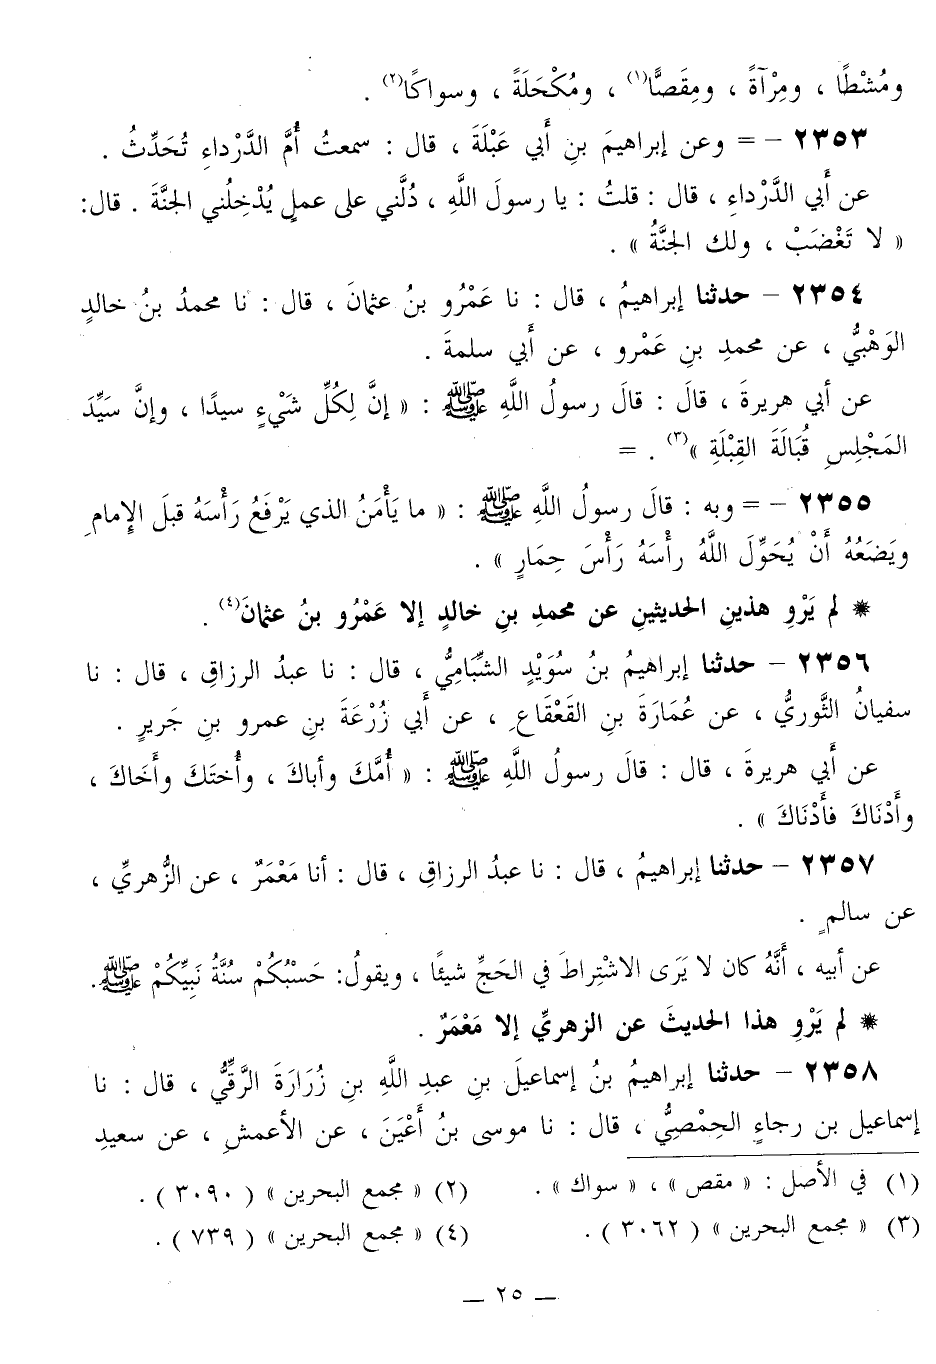 ومُشْطًا ، ومِرْآةً ، ومِقَصًّا(١) ، ومُكْحَلَةً ، وسواكًا(٢) .
٢٣٥٣ – = وعن إبراهيمَ بنِ أبي عَبْلَةَ ، قال : سمعتُ أُمَّ الدَّرْداءِ تُحَدِّثُ .
عن أَبي الدَّرْداءِ ، قال : قلتُ : يا رسولَ اللَّهِ ، دُلَّني على عملٍ يُدْخِلُني الجنَّةَ . قال:
« لا تَغْضَبْ ، ولك الجنَّةُ » .
٢٣٥٤ – حدثنا إبراهيمُ ، قال : نا عَمْرُو بنُ عثمانَ ، قال : نا محمدُ بنُ خالدٍ
الوَهْبيُّ ، عن محمدِ بنِ عَمْرو ، عن أَبي سلمةَ .
عن أبي هريرةَ ، قالَ : قالَ رسولُ اللَّهِ ﷺ : « إنَّ لِكُلِّ شَيْءٍ سيدًا ، وإنَّ سَيِّدَ
المَجْلِسِ قُبَالَةَ القِبْلَةِ »(٣) . =
٢٣٥٥ – = وبه : قالَ رسولُ اللَّهِ ﷺ : « ما يَأْمَنُ الذي يَرْفَعُ رَأْسَهُ قبلَ الإِمامِ
ويَضَعُهُ أَنْ يُحَوِّلَ اللَّهُ رأْسَهُ رَأْسَ حِمَارٍ » .
✵ لم يَرْوِ هذينِ الحديثينِ عن محمدِ بنِ خالدٍ إلا عَمْرُو بنُ عثمانَ(٤) .
٢٣٥٦ – حدثنا إبراهيمُ بنُ سُوَيْدٍ الشِّبَامِيُّ ، قال : نا عبدُ الرزاقِ ، قال : نا
سفيانُ الثَّوريُّ ، عن عُمَارَةَ بنِ القَعْقَاعِ ، عن أَبي زُرْعَةَ بنِ عمرو بنِ جَريرٍ .
عن أَبي هريرةَ ، قال : قالَ رسولُ اللَّهِ ﷺ : « أُمَّكَ وأباكَ ، وأُختَكَ وأَخَاكَ ،
وأَدْنَاكَ فأَدْنَاكَ » .
٢٣٥٧ – حدثنا إبراهيمُ ، قال : نا عبدُ الرزاقِ ، قال : أنا مَعْمَرٌ ، عن الزُّهريِّ ،
عن سالمٍ .
عن أبيه ، أَنَّهُ كان لا يَرَى الاشْتِراطَ في الحَجِّ شيئًا ، ويقولُ: حَسْبُكُمْ سُنَّةُ نَبِيِّكُمْ ﷺ.
✵ لم يَرْوِ هذا الحديثَ عن الزهريِّ إلا مَعْمَرٌ .
٢٣٥٨ – حدثنا إبراهيمُ بنُ إسماعيلَ بنِ عبدِ اللَّهِ بنِ زُرَارَةَ الرَّقِّيُّ ، قال : نا
إسماعيل بن رجاءٍ الحِمْصِيُّ ، قال : نا موسى بنُ أَعْيَنَ ، عن الأعمشِ ، عن سعيدِ
(١) في الأصل : « مقص » ، « سواك » .
(٢) « مجمع البحرين » ( ٣٠٩٠ ) .
(٣) « مجمع البحرين » ( ٣٠٦٢ ) .
(٤) « مجمع البحرين » ( ٧٣٩ ) .
– ٢٥ –